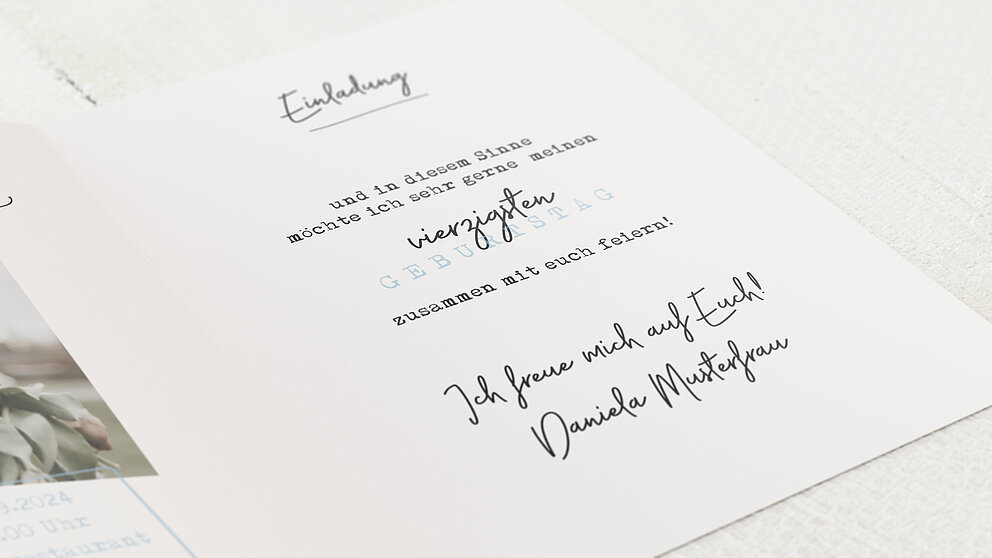 Einladung
und in diesem Sinne
möchte ich sehr gerne meinen
vierzigsten
GEBURTSTAG
zusammen mit euch feiern!
Ich freue mich auf Euch!
Daniela Musterfrau
9.2024
.00 Uhr